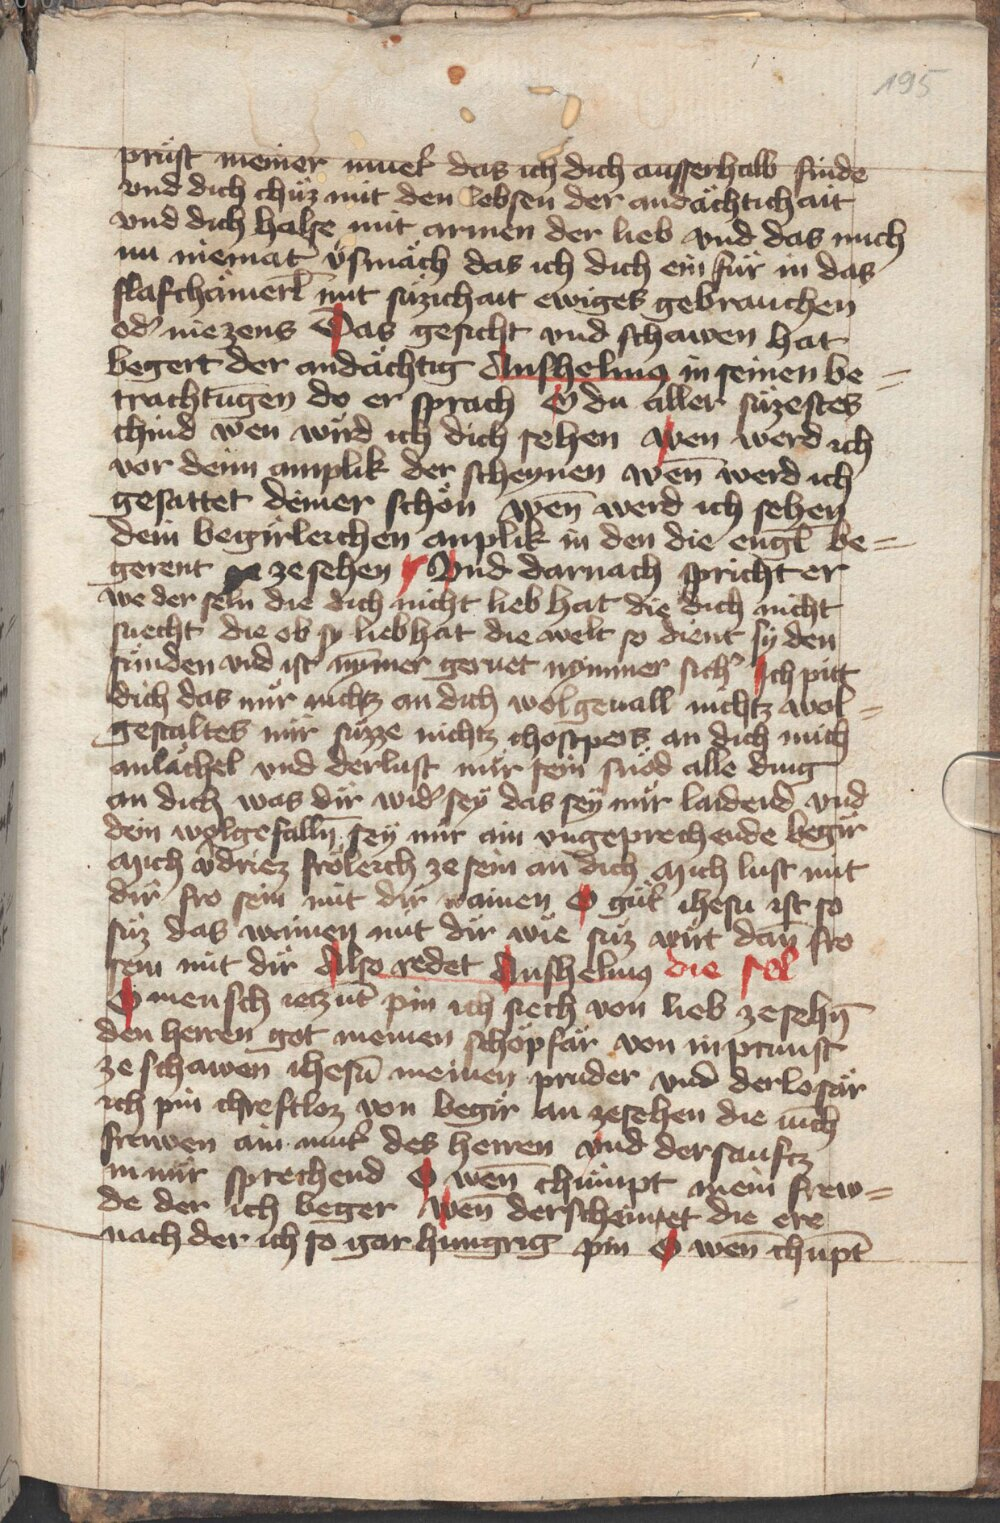 195
prüst meiner muet̉ das ich dich ausserhalb finde
vnd dich chüz mit den lebsen der andächtichait
vnd dich halse mit armen der lieb vnd das mich
nu niemat v̉smäch das ich dich ein für in das
slafchämerl̄ mit süzichait ewiges gebrauchen
od̉ niezens Das gesicht vnd schawen hat
begert der andächtig Anshelmꝰ in seinen be=
trachtūgen do er sprach O du aller süzestes
chind wen wird ich dich sehen wen werd ich
vor deim anplik der scheynen wen̄ werd ich
gesattet deiner schön wen̄ werd ich sehen
dein begirleichen anplik in den die engl̄ be=
gerent ze sehen Vnd darnach spricht er
we der seln die dich nicht lieb hat die dich nicht
suecht die ob sy lieb hat die welt so dient sy den
sünden vnd ist nȳmer geruet nymmer sich̉ Ich pitt
dich das mir nichtz an dich wolgeuall nichtz wol=
gestaltes mir süzze nichtz chostpers an dich mich
anlächel vnd derlust mir sein snöd alle ding
an dich was dir wid̉ sey das sey mir laidend vnd
dein wolgefalln̄ sey mir ain vngeprechende begir
Mich v̉driez frölich ze sein an dich Mich lust mit
dir fro sein mit dir wainen O güt̉ ihesu ist so
süz das wainen mit dir wie süz wirt dan̄ fro
sein mit dir Also redet Anshelmꝰ die sel
O mensch ietzūt pin ich siech von lieb ze sehn̄
den herren got meinen schöpfär von inprunst
ze schawen ihesū meinen pruder vnd derlosär
ich pin chreftloz von begir an zesehen die iūch
frawen ain mut̉ des herren vnd dersauftz
in mir sprechend O wen̄ chümpt mein frew=
de der ich beger wen̄ derscheinet die ere
nach der ich so gar hungrig pin O wen̄ chüpt